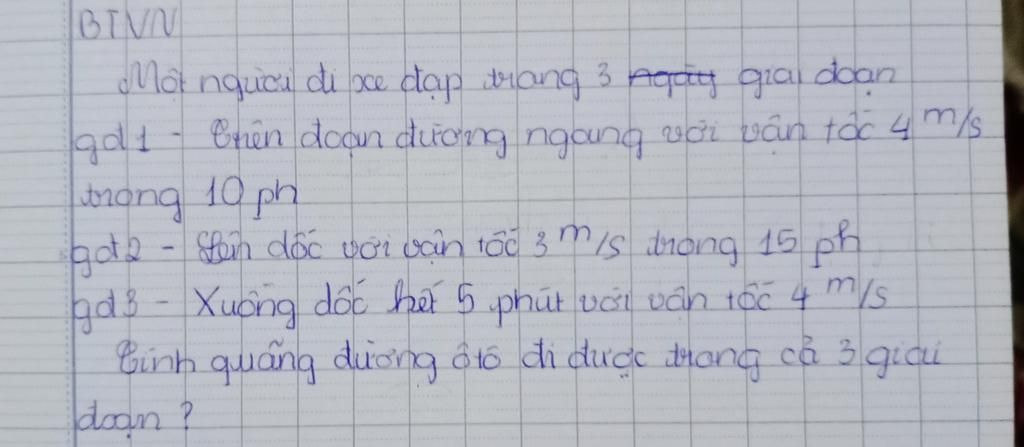 BTVN
Một người đi xe đạp trong 3 ngày giai đoạn
gđ1 - Trên đoạn đường ngang với vận tốc 4 m/s
trong 10 ph
gđ2 - Lên dốc với vận tốc 3 m/s trong 15 ph
gđ3 - Xuống dốc hết 5 phút với vận tốc 4 m/s
Tính quãng đường ôtô đi được trong cả 3 giai
đoạn ?